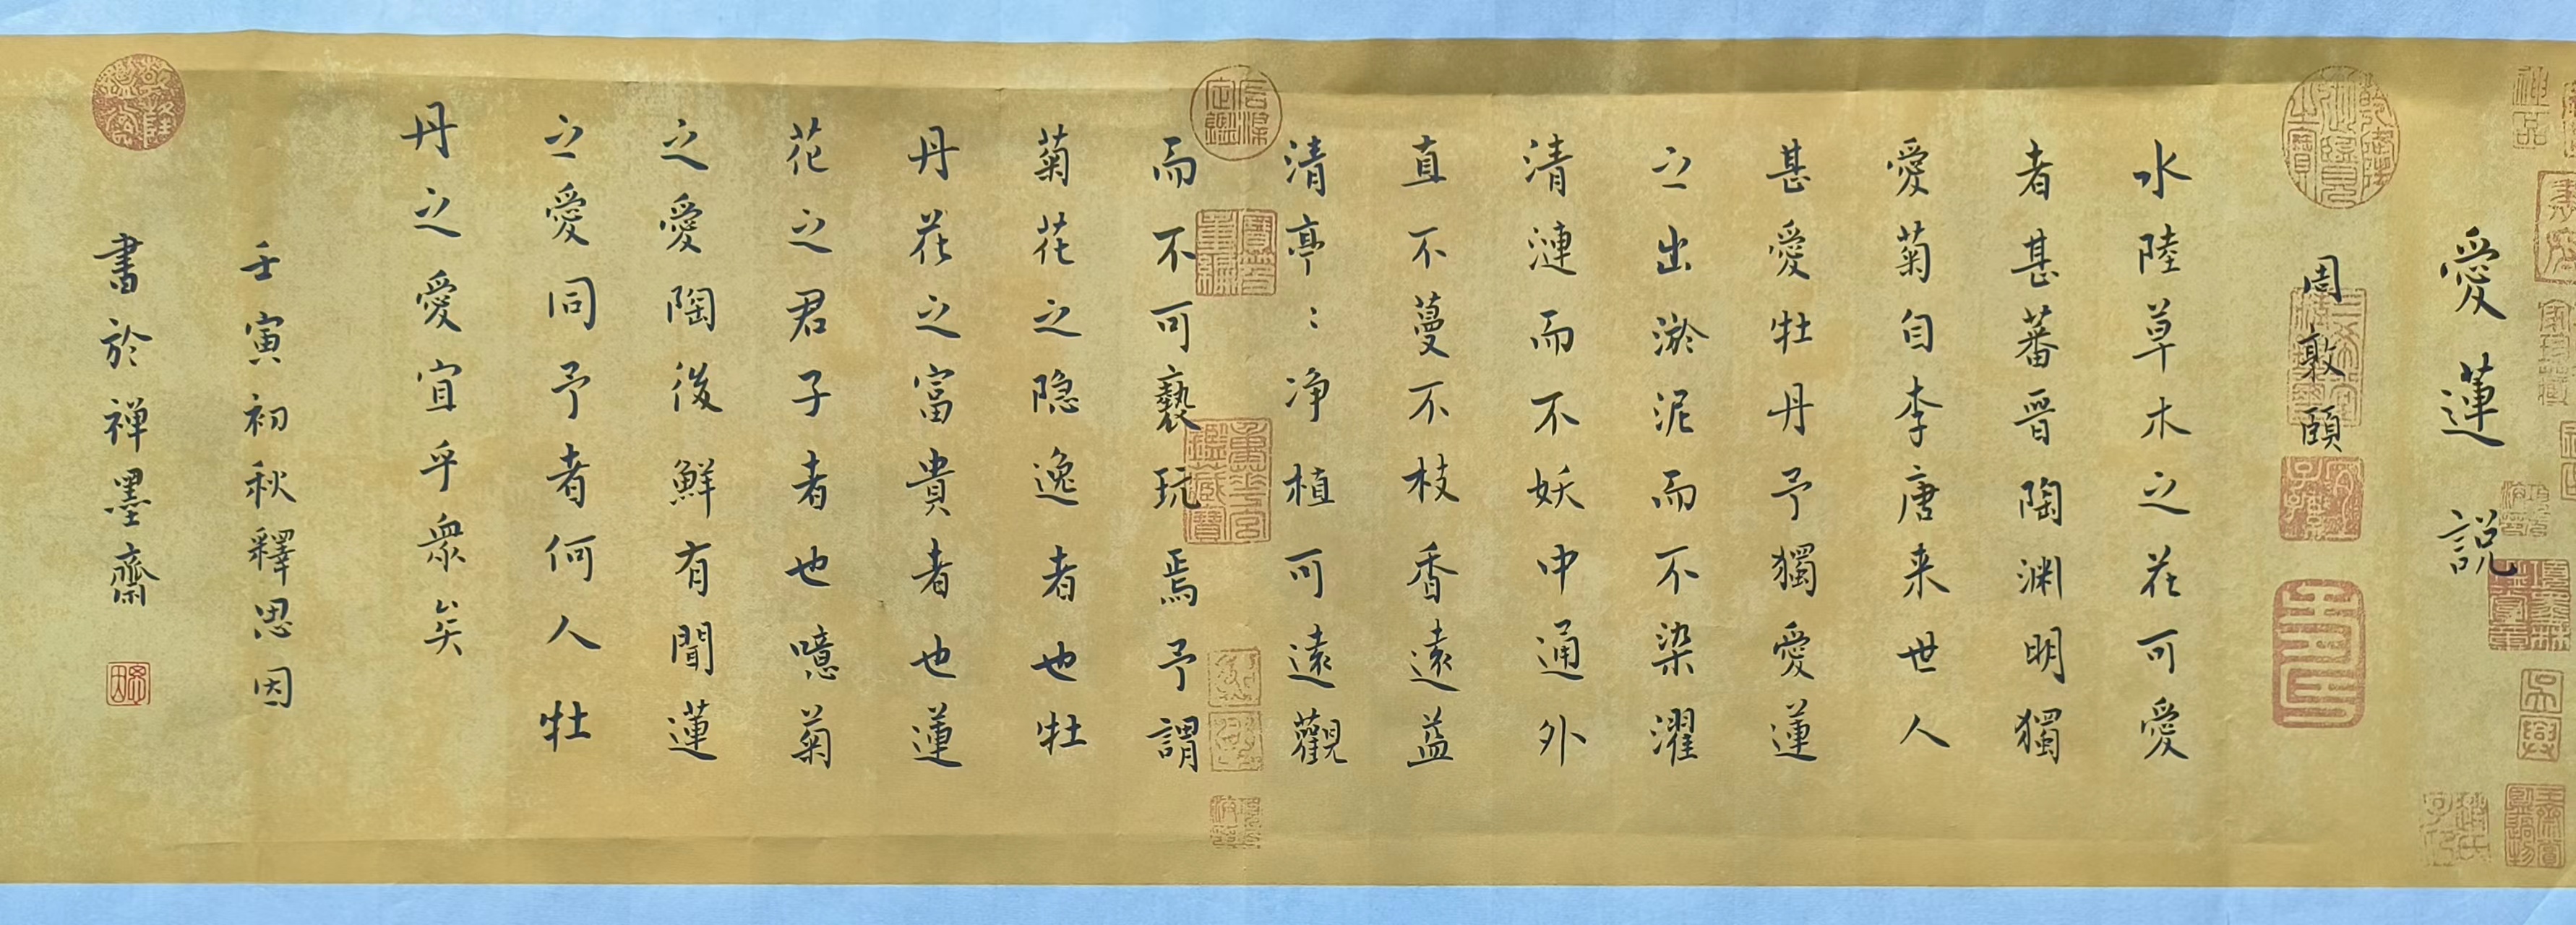 愛蓮説
周敦頤
水陸草木之花可愛
者甚蕃晉陶渊明獨
愛菊自李唐来世人
甚愛牡丹予獨愛蓮
之出淤泥而不染濯
清漣而不妖中通外
直不蔓不枝香遠益
清亭：净植可遠觀
而不可褻玩焉予謂
菊花之隐逸者也牡
丹花之富貴者也蓮
花之君子者也噫菊
之愛陶後鮮有聞蓮
之愛同予者何人牡
丹之愛宜乎衆矣
壬寅初秋釋思因
書於禅墨齋